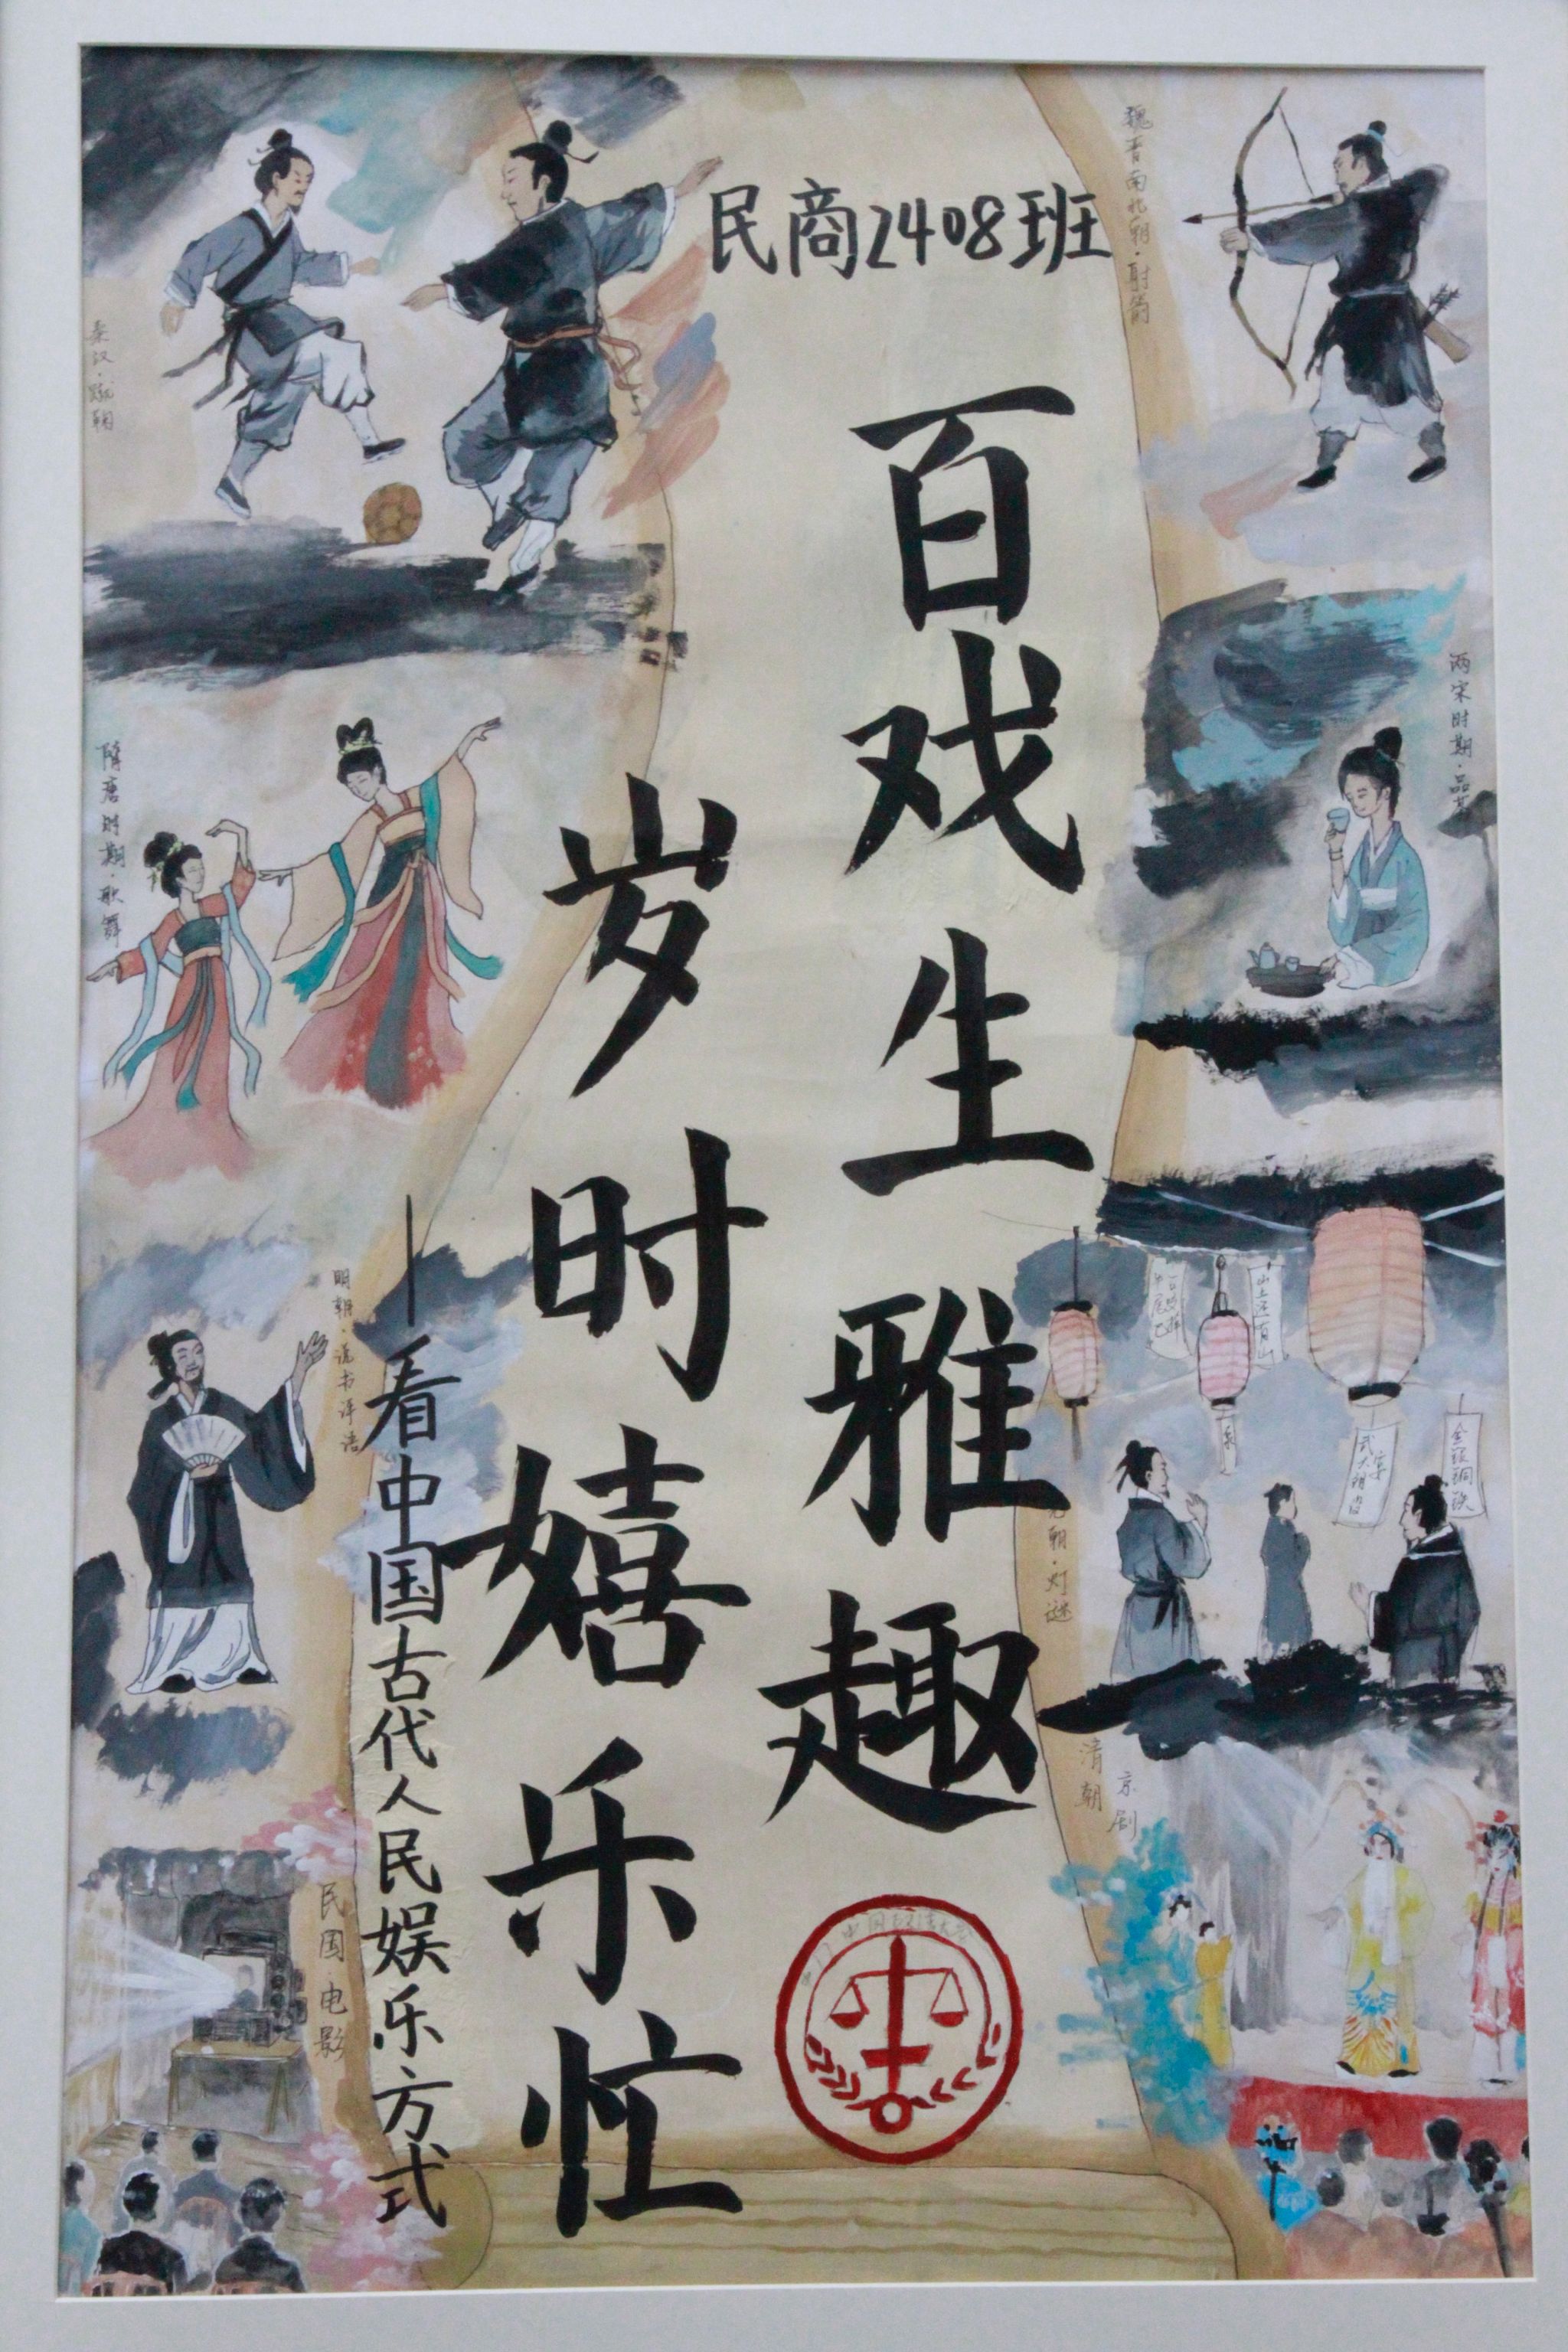 民商2408班
百戏生雅趣
岁时嬉乐忙
——看中国古代人民娱乐方式
秦汉·蹴鞠
魏晋南北朝·射箭
隋唐时期·歌舞
两宋时期·品茗
元朝·灯谜
山上还有山
金银铜铁
明朝·说书评话
清朝
京剧
民国电影
中国政法大学